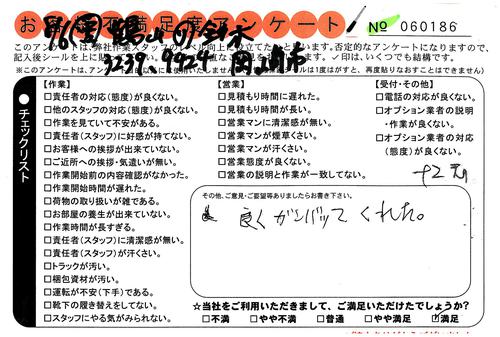 お客様不満足度アンケート
No 060186
このアンケートは、弊社作業スタッフのレベル向上に役立てたいと思います。否定的なアンケートになりますので、
※このアンケートは、
【作業】
□責任者の対応(態度)が良くない。
□他のスタッフの対応(態度)が良くない。
□作業を見ていて不安がある。
□責任者(スタッフ)に好感が持てない。
□お客様への挨拶が出来ていない。
□ご近所への挨拶・気遣いが無い。
□作業開始前の内容確認がなかった。
□作業開始時間が遅れた。
□荷物の取り扱いが雑である。
□お部屋の養生が出来ていない。
□作業時間が長すぎる。
□責任者(スタッフ)に清潔感が無い。
□責任者(スタッフ)が汗くさい。
□トラックが汚い。
□梱包資材が汚い。
□運転が不安(下手)である。
□靴下の履き替えをしてない。
□スタッフにやる気がみられない。
【営業】
□見積もり時間に遅れた。
□見積もり時間が長い。
□営業マンに清潔感が無い。
□営業マンが煙草くさい。
□営業マンが汗くさい。
□営業態度が良くない。
□営業の説明と作業が一致してない。
【受付・その他】
□電話の対応が良くない。
□オプション業者の説明
・作業が良くない。
□オプション業者の対応
(態度)が良くない。
その他、ご意見・ご要望等ありましたらお書き下さい。
良くガンバッてくれた。
☆当社をご利用いただきまして、ご満足いただけたでしょうか?
□不満 □やや不満 □普通 □やや満足 □満足
●チェックリスト